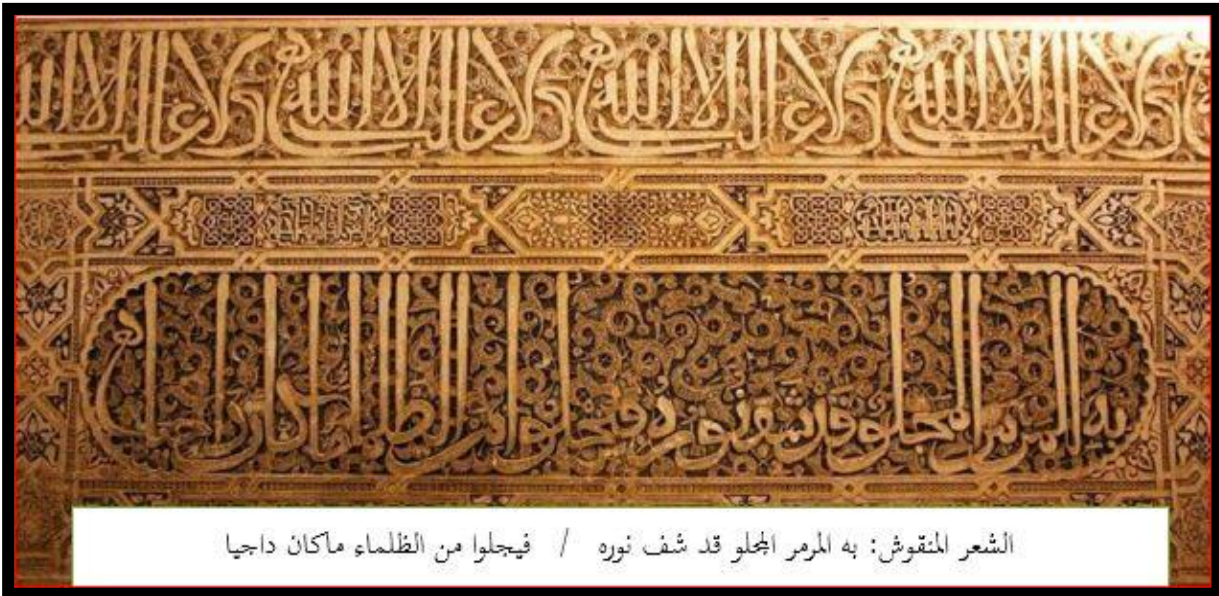 ولا غالب الا الله ولا غالب الا الله ولا غالب الا الله ولا غالب الا الله
به المرمر المجلو قد شف نوره فيجلو من الظلماء ما كان داجيا
الشعر المنقوش: به المرمر المجلو قد شف نوره / فيجلوا من الظلماء ماكان داجيا